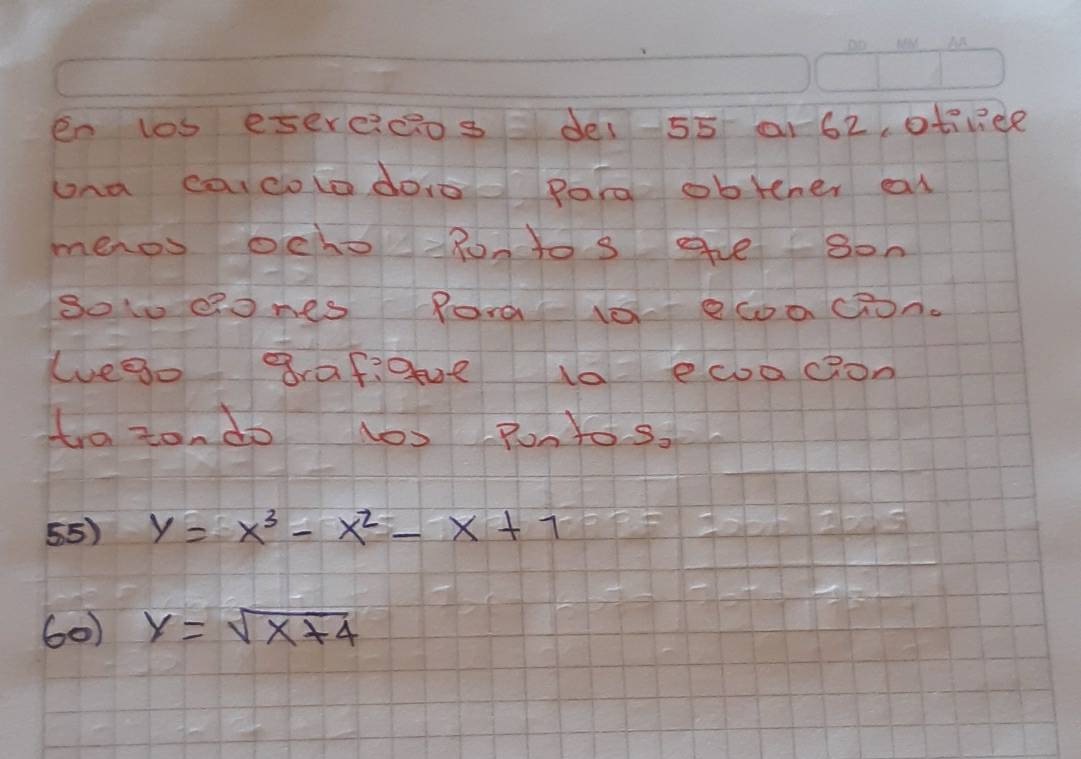 DD MM AA
en los esercicios del 55 al 62, utilice
una calculadora para obtener al
menos ocho Puntos que son
soluciones Para la ecuacion.
Luego grafique la ecuacion
trazando los Puntos.
55) y = x³ - x² - x + 1
60) y = √x+4